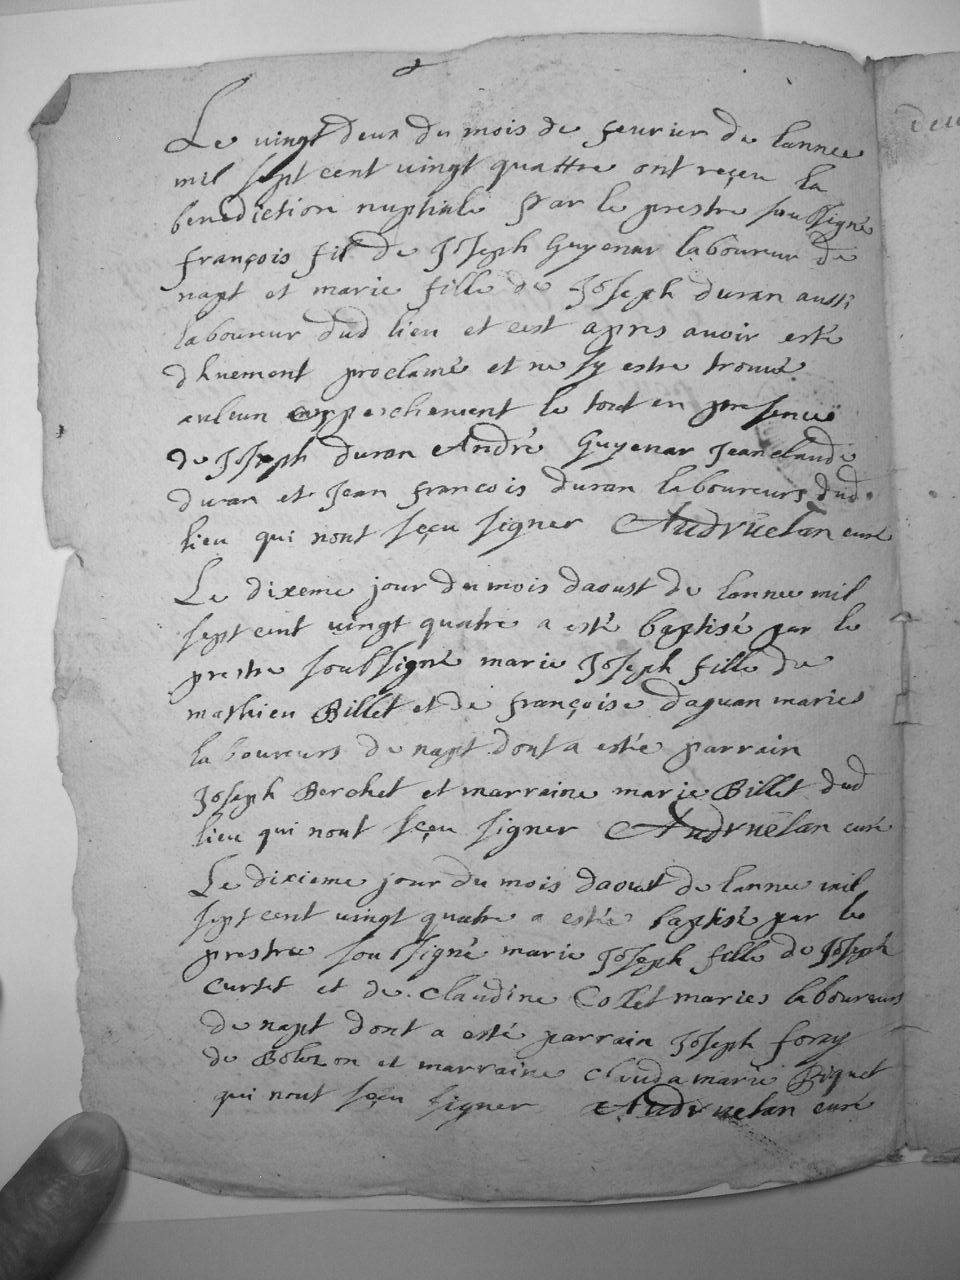 Le vingt deux du mois de feurier de lannee
mil sept cent vingt quattre ont reçeu la
benediction nuptiale par le prestre soubsigné
françois fil de Joseph Guyenar laboureur de
napt et marie fille de Joseph duran aussi
laboureur dud lieu et cest apres auoir esté
dhuement proclamé et ne sy estre trouué
auleun empeschement le tout en presence
de Joseph duran André Guyenar Jean claude
duran et Jean francois duran laboureurs dud.
lieu qui nont sçeu signer Audruelan curé
Le dixeme jour du mois daoust de lannee mil
sept cent vingt quatre a esté baptisé par le
prestre soubsigné marie Joseph fille de
mathieu Billet et de françoise daguan maries
laboureurs de napt dont a estée parrain
Joseph Berchet et marraine marie Billet dud
lieu qui nont sçeu signer Audruelan curé
Le dixieme jour du mois daoust de lannee mil
sept cent vingt quatre a estée baptisé par le
prestre soubsigné marie Joseph fille de Joseph
Curtet et de claudine Collet maries laboureurs
de napt dont a esté parrain Joseph foray
de Bolozon et marraine clauda marie Piquet
qui nont sçeu signer Audruelan curé